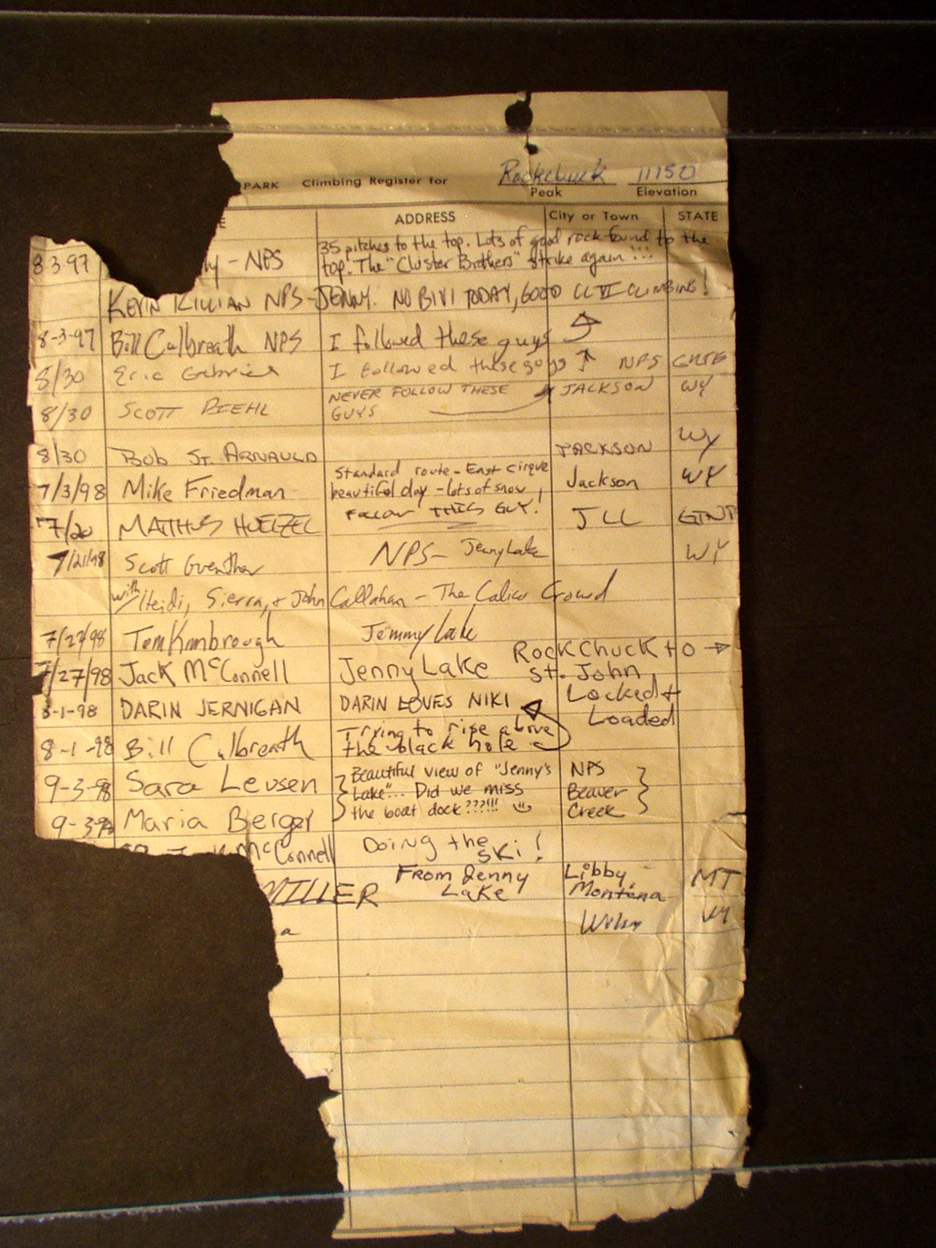 PARK Climbing Register for Rockchuck 11150
Peak Elevation
ADDRESS City or Town STATE
8 3-97 - NPS 35 pitches to the top. Lots of good rock found to the
top. The "Cluster Brothers" strike again!!!
KEVIN KILLIAN NPS-JENNY. NO BIVI TODAY, GOOD CLIMBING!
8-3-97 Bill Culbreath NPS I followed these guys
8/30 Eric Gabriel I followed these guys NPS
8/30 SCOTT NEVER FOLLOW THESE JACKSON WY
GUYS
8/30 BOB ST. ARNAULD JACKSON WY
7/3/98 Mike Friedman Standard route - East cirque Jackson WY
beautiful day - lots of snow!
7/20 FOLLOW THIS GUY! JLL GTNP
7/21/98 Scott Guenther NPS - Jenny Lake WY
with Heidi, Sierra, + John Callahan - The Calico Crowd
7/27/98 Tom Kimbrough Jenny Lake
7/27/98 Jack McConnell Jenny Lake RockChuck to →
St. John
-1-98 DARIN JERNIGAN DARIN LOVES NIKI Locked +
Loaded
8-1-98 Bill Culbreath Trying to rise above
the black hole
9-3-98 Sara Leusen Beautiful view of "Jenny's NPS
Lake"... Did we miss Beaver
9-3-98 Maria Berger the boat dock???!!! Creek
McConnell Doing the
Ski!
MILLER From Jenny Libby MT
Lake Montana
a Wilson WY